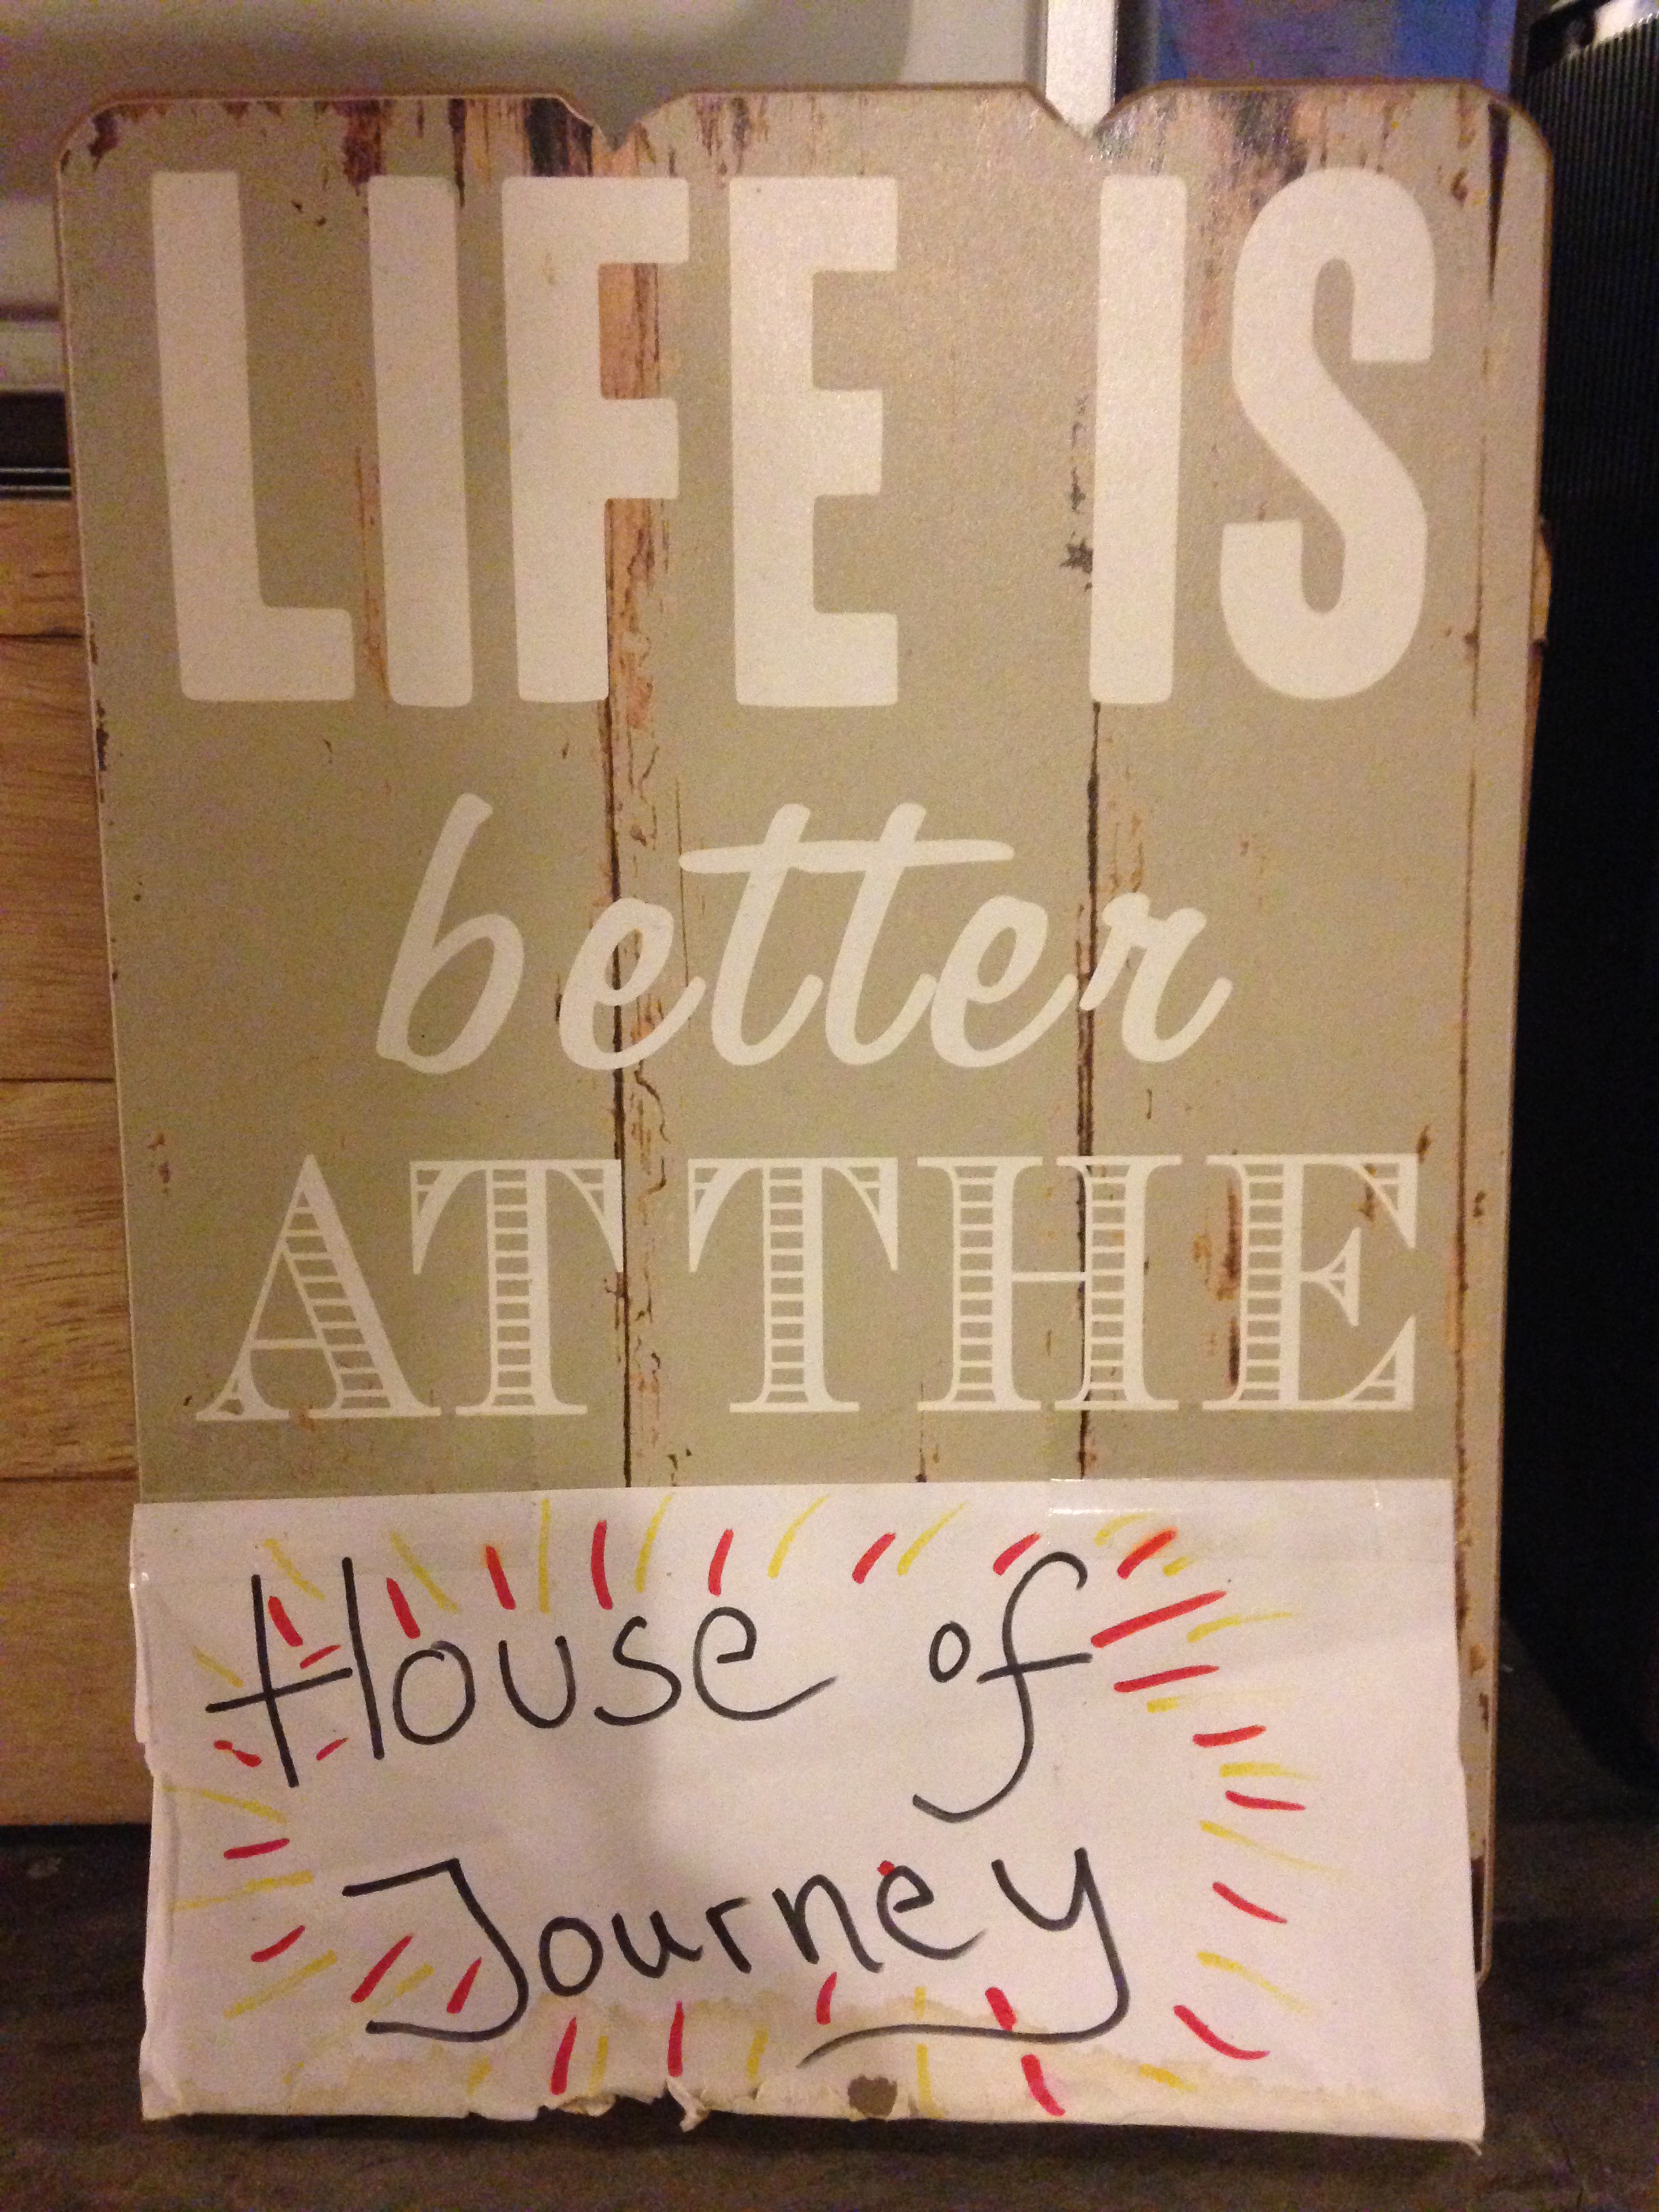 LIFE IS
better
AT THE
House of
Journey